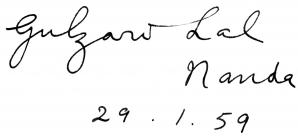 Gulzari Lal
Nanda
29.1.59